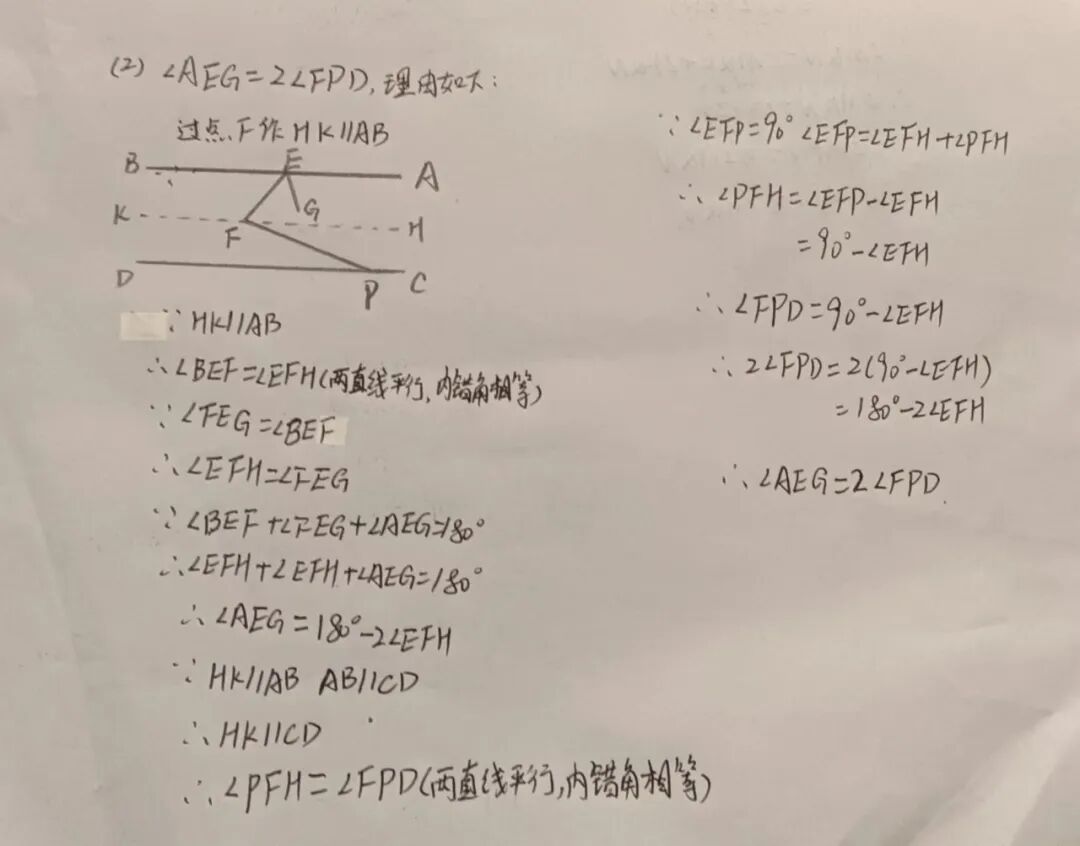 (2) ∠AEG=2∠FPD,理由如下:
过点F作HK//AB
B E A
K F G H
D P C
∵ HK//AB
∴∠BEF=∠EFH(两直线平行,内错角相等)
∵ ∠FEG=∠BEF
∴∠EFH=∠FEG
∵ ∠BEF+∠FEG+∠AEG=180°
∴∠EFH+∠EFH+∠AEG=180°
∴ ∠AEG=180°-2∠EFH
∵ HK//AB AB//CD
∴ HK//CD
∴ ∠PFH=∠FPD(两直线平行,内错角相等)
∵ ∠EFP=90° ∠EFP=∠EFH+∠PFH
∴ ∠PFH=∠EFP-∠EFH
=90°-∠EFH
∴ ∠FPD=90°-∠EFH
∴ 2∠FPD=2(90°-∠EFH)
=180°-2∠EFH
∴ ∠AEG=2∠FPD